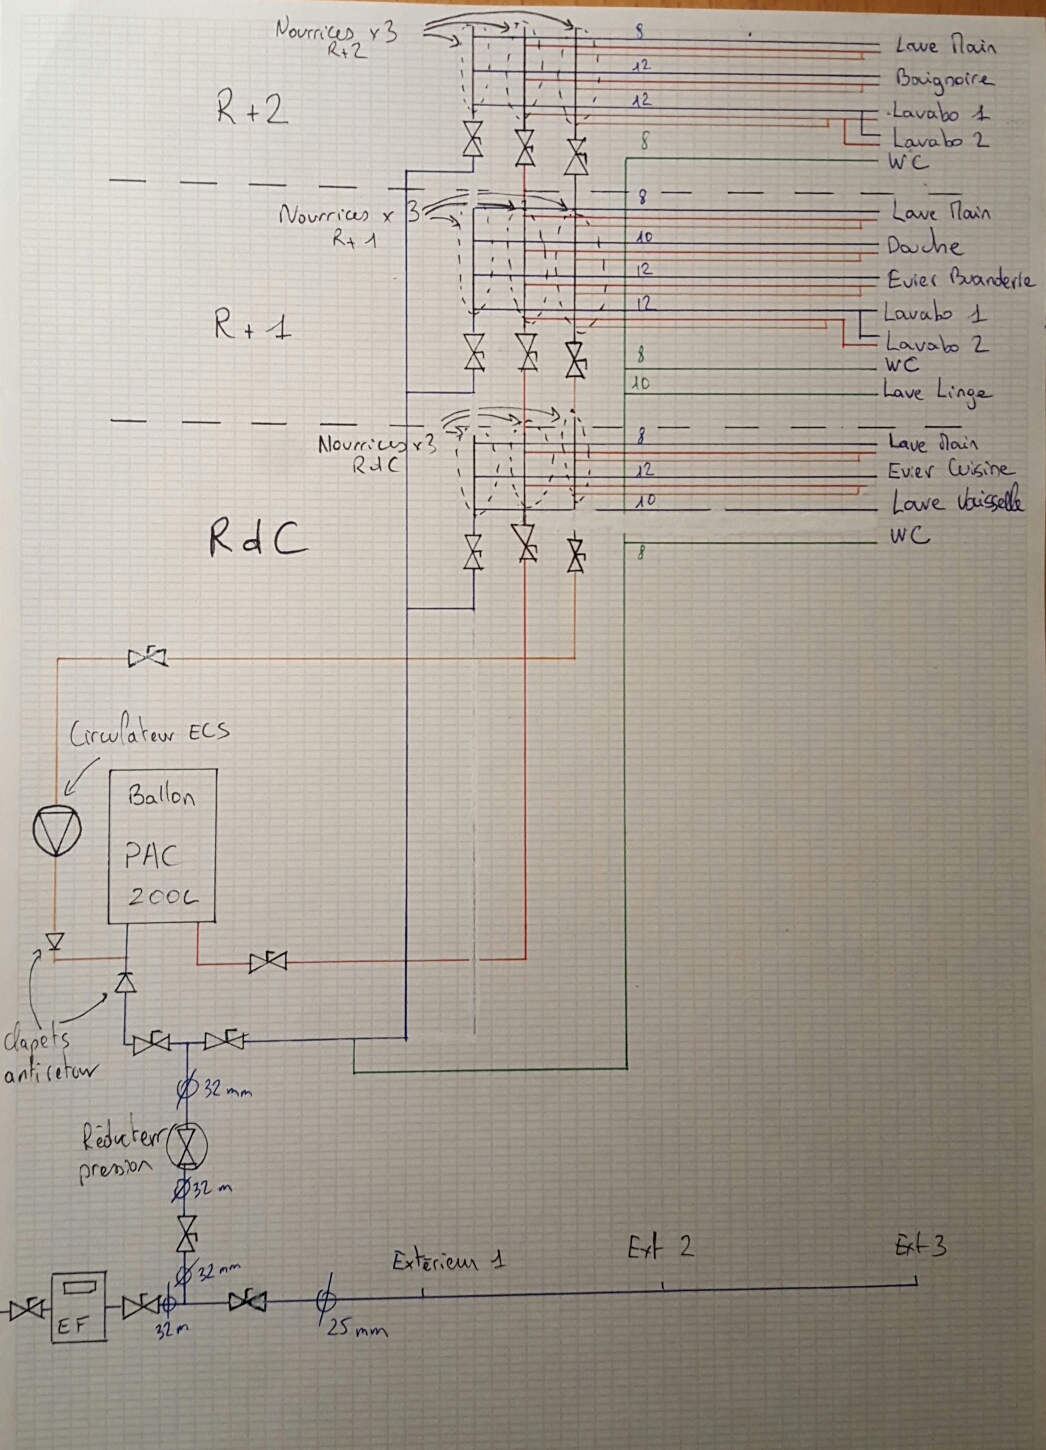 Nourrices x3
R+2
8
Lave Main
12
Baignoire
R+2
12
Lavabo 1
8
Lavabo 2
WC
8
Nourrices x 3
R+1
Lave Main
10
Douche
12
Evier Buanderie
R+1
12
Lavabo 1
Lavabo 2
8
WC
10
Lave Linge
Nourrices x3
RdC
8
Lave Main
12
Evier Cuisine
10
Lave Vaisselle
RdC
8
WC
Circulateur ECS
Ballon
PAC
200L
Clapets
antiretour
Ø32 mm
Réducteur
pression
Ø32 m
Ø32 mm
Extérieur 1
Ext 2
Ext 3
EF
32 m
25 mm